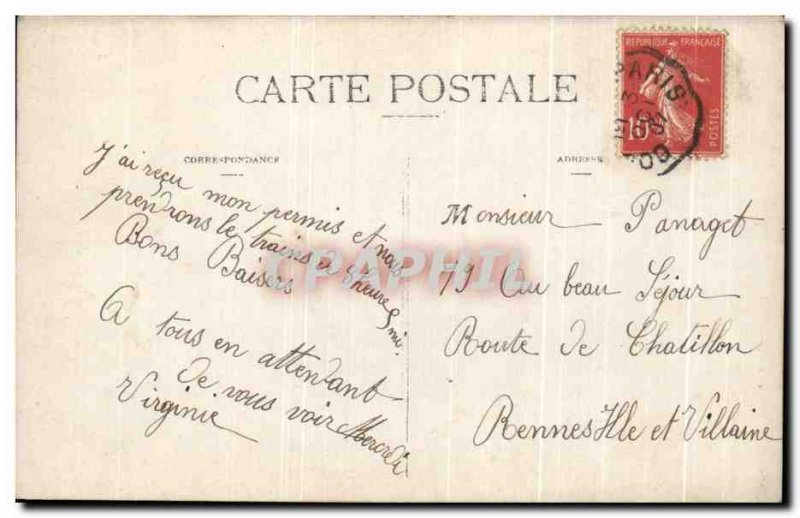 CARTE POSTALE
CORRESPONDANCE
J'ai reçu mon permis et nous
prendrons le trains a 8 heure
Bons Baisers
A tous en attendant
de vous voir Mercredi
Virginie
ADRESSE
Monsieur Panaget
79 Au beau Séjour
Route de Chatillon
Rennes Ille et Villaine
REPUBLIQUE FRANÇAISE
POSTES
PARIS
CPAPHIL